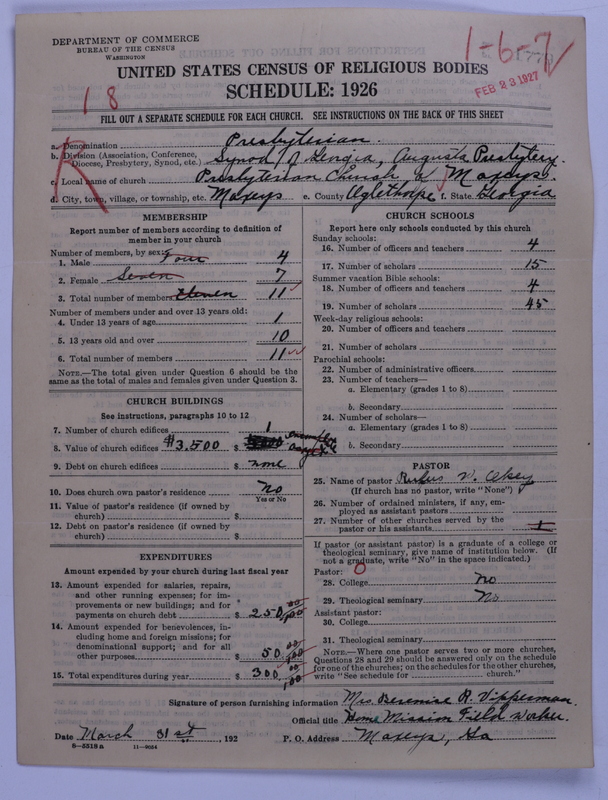 DEPARTMENT OF COMMERCE
BUREAU OF THE CENSUS
WASHINGTON
1-6-7
FEB 23 1927
UNITED STATES CENSUS OF RELIGIOUS BODIES
SCHEDULE: 1926
18
FILL OUT A SEPARATE SCHEDULE FOR EACH CHURCH. SEE INSTRUCTIONS ON THE BACK OF THIS SHEET
R
a. Denomination Presbyterian.
b. Division (Association, Conference, Diocese, Presbytery, Synod, etc.) Synod of Georgia, Augusta Presbytery.
c. Local name of church Presbyterian Church Maxeys.
d. City, town, village, or township, etc. Maxeys e. County Oglethorpe f. State Georgia
MEMBERSHIP
Report number of members according to definition of
member in your church
Number of members, by sex:
1. Male Four 4
2. Female Seven 7
3. Total number of members Eleven 11
Number of members under and over 13 years old:
4. Under 13 years of age 1
5. 13 years old and over 10
6. Total number of members 11
NOTE.—The total given under Question 6 should be
same as the total of males and females given under Question 3.
CHURCH BUILDINGS
See instructions, paragraphs 10 to 12
7. Number of church edifices 1
8. Value of church edifices $3,500 $
9. Debt on church edifices $ none
10. Does church own pastor's residence No
Yes or No
11. Value of pastor's residence (if owned by
church) $
12. Debt on pastor's residence (if owned by
church) $
EXPENDITURES
Amount expended by your church during last fiscal year
13. Amount expended for salaries, repairs,
and other running expenses; for im-
provements or new buildings; and for
payments on church debt $ 250 00/100
14. Amount expended for benevolences, in-
cluding home and foreign missions; for
denominational support; and for all
other purposes $ 50 00/100
15. Total expenditures during year $ 300 00/100
CHURCH SCHOOLS
Report here only schools conducted by this church
Sunday schools:
16. Number of officers and teachers 4
17. Number of scholars 15
Summer vacation Bible schools:
18. Number of officers and teachers 4
19. Number of scholars 45
Week-day religious schools:
20. Number of officers and teachers
21. Number of scholars
Parochial schools:
22. Number of administrative officers
23. Number of teachers—
a. Elementary (grades 1 to 8)
b. Secondary
24. Number of scholars—
a. Elementary (grades 1 to 8)
b. Secondary
PASTOR
25. Name of pastor Rufus W. Okey
(If church has no pastor, write "None")
26. Number of ordained ministers, if any, em-
ployed as assistant pastors
27. Number of other churches served by the
pastor or his assistants 1
If pastor (or assistant pastor) is a graduate of a college or
theological seminary, give name of institution below. (If
not a graduate, write "No" in the space indicated.)
Pastor: 0
28. College No
29. Theological seminary No
Assistant pastor:
30. College
31. Theological seminary
NOTE.—Where one pastor serves two or more churches,
Questions 28 and 29 should be answered only on the schedule
for one of the churches; on the schedules for the other churches,
write "See schedule for church."
Signature of person furnishing information Mrs. Berenise R. Vipperman
Official title Home Mission Field Worker.
Date March 31st, 192 P. O. Address Maxeys, Ga
8-5518a 11-9054